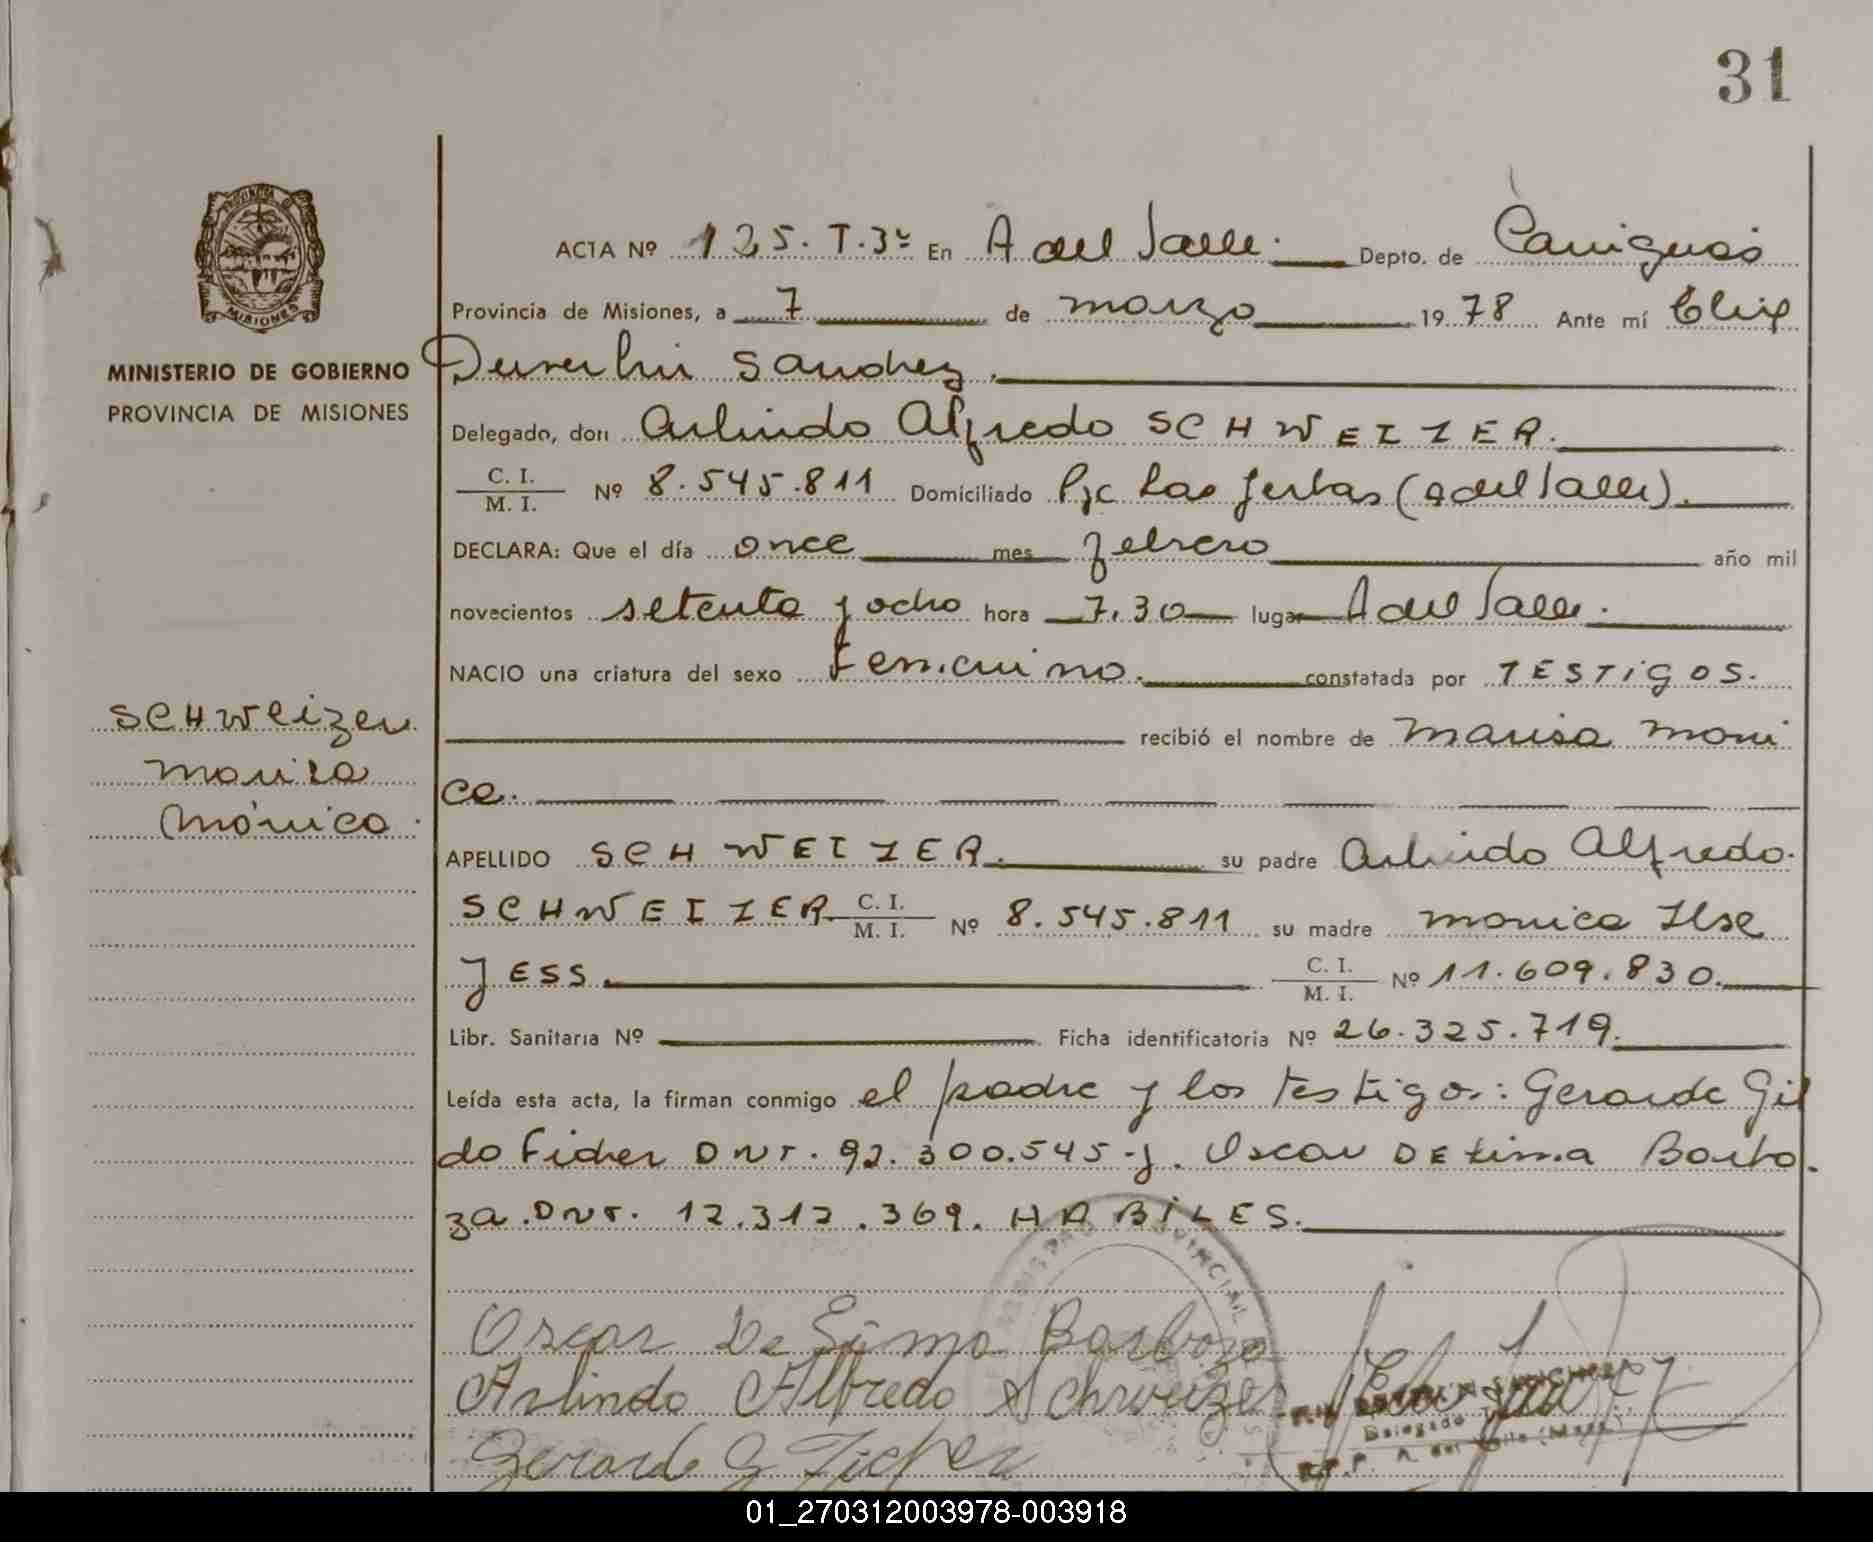 31
PROVINCIA D
MISIONES
MINISTERIO DE GOBIERNO
PROVINCIA DE MISIONES
SCHWeizer
Marisa
Mónica
ACTA Nº 125. T.3º En A del Valle. Depto. de Cainguás
Provincia de Misiones, a 7 de marzo 1978 Ante mí
Sanchez.
Delegado, don Arlindo Alfredo SCHWEIZER.
C. I. / M. I. Nº 8.545.811 Domiciliado Pje Las Yerbas (A del Valle).
DECLARA: Que el día once mes febrero año mil
novecientos setenta y ocho hora 7.30 lugar A del Valle.
NACIO una criatura del sexo Femenino. constatada por TESTIGOS.
recibió el nombre de Marisa Moni
ca.
APELLIDO SCHWEIZER. su padre Arlindo Alfredo.
SCHWEIZER C. I. / M. I. Nº 8.545.811 su madre Monica Ilse
JESS. C. I. / M. I. Nº 11.609.830.
Libr. Sanitaria Nº Ficha identificatoria Nº 26.325.719.
Leída esta acta, la firman conmigo el padre y los testigos: Gerardo Gil
do Ficher DNI. 92.300.545-y. Oscar DE Lima Barbo
za. DNI. 12.312.369. HABILES.
Oscar De Lima Barboza
Arlindo Alfredo Schweizer
Gerardo G Ficher
SANCHEZ
Delegado
R.P.P. A. del Valle (Mnes.)
01_270312003978-003918